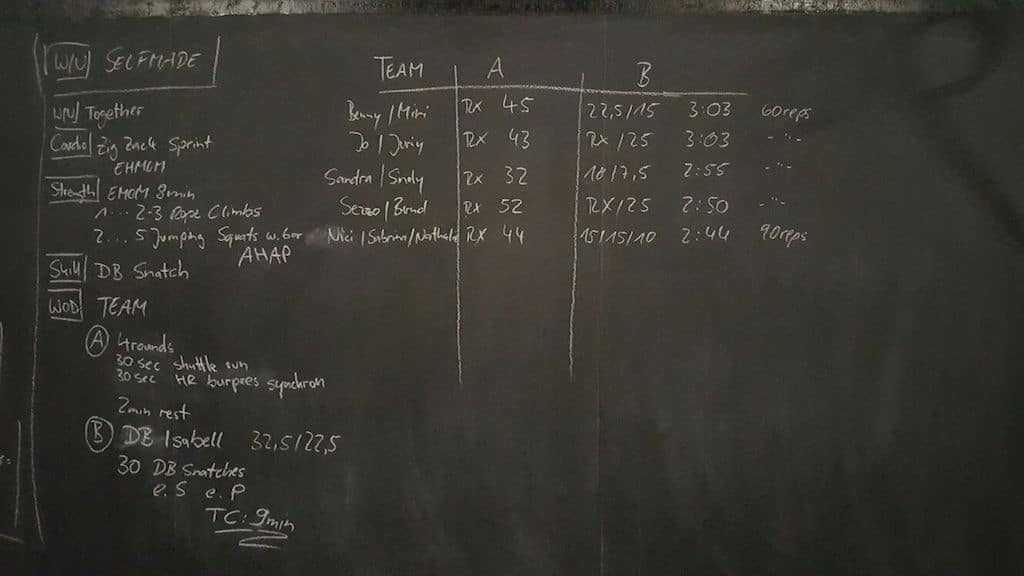 W/U SELFMADE
W/U Together
Cardio Zig Zack Sprint
EMMOM
Strength EMOM 8min
1... 2-3 Rope Climbs
2... 5 Jumping Squats w. Bar
AHAP
Skill DB Snatch
WOD TEAM
A 4 rounds
30 sec shuttle run
30 sec HR burpees synchron
2min rest
B DB Isabell 32,5/22,5
30 DB Snatches
e.S e.P
TC: 9min
TEAM A B
Benny/Mimi RX 45 22,5/15 3:03 60reps
Jo/Juriy RX 43 RX/25 3:03 -"-
Sandra/Sindy RX 32 10/7,5 2:55 -"-
/Bernd RX 52 RX/25 2:50 -"-
Nici/Sabrina/Nathalie RX 44 15/15/10 2:44 90reps